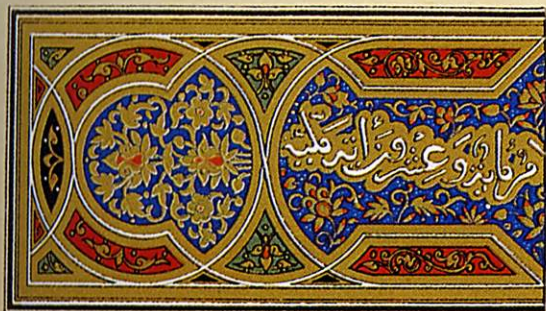 ماية وَعِشرون اية مكيّة